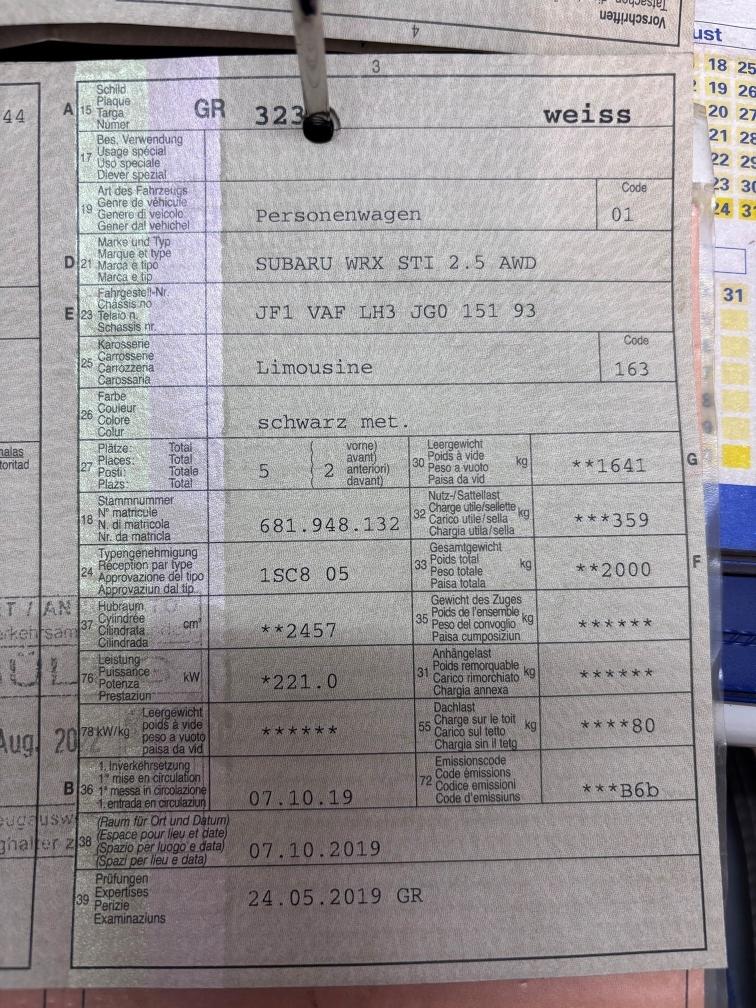 Vorschriften
4
3
ust
18 25
19 26
20 27
21 28
22 29
23 30
24 31
31
44
A 15 Schild
Plaque
Targa
Numer
GR 323
weiss
17 Bes. Verwendung
Usage spécial
Uso speciale
Diever spezial
19 Art des Fahrzeugs
Genre de véhicule
Genere di veicolo
Gener dal vehichel
Personenwagen
Code
01
D 21 Marke und Typ
Marque et type
Marca e tipo
Marca e tip
SUBARU WRX STI 2.5 AWD
E 23 Fahrgestell-Nr.
Châssis no
Telaio n.
Schassis nr.
JF1 VAF LH3 JG0 151 93
25 Karosserie
Carrosserie
Carrozzeria
Carossaria
Limousine
Code
163
26 Farbe
Couleur
Colore
Colur
schwarz met.
27 Plätze: Total
Places: Total
Posti: Totale
Plazs: Total
5
2
vorne)
avant)
anteriori)
davant)
30 Leergewicht
Poids à vide
Peso a vuoto
Paisa da vid
kg
**1641
G
18 Stammnummer
N° matricule
N. di matricola
Nr. da matricla
681.948.132
32 Nutz-/Sattellast
Charge utile/sellette
Carico utile/sella
Chargia utila/sella
kg
***359
24 Typengenehmigung
Réception par type
Approvazione del tipo
Approvaziun dal tip
1SC8 05
33 Gesamtgewicht
Poids total
Peso totale
Paisa totala
kg
**2000
F
37 Hubraum
Cylindrée
Cilindrata
Cilindrada
cm³
**2457
35 Gewicht des Zuges
Poids de l'ensemble
Peso del convoglio
Paisa cumposiziun
kg
******
76 Leistung
Puissance
Potenza
Prestaziun
kW
*221.0
31 Anhängelast
Poids remorquable
Carico rimorchiato
Chargia annexa
kg
******
78 kW/kg
Leergewicht
poids à vide
peso a vuoto
paisa da vid
******
55 Dachlast
Charge sur le toit
Carico sul tetto
Chargia sin il tetg
kg
****80
B 36 1. Inverkehrsetzung
1re mise en circulation
1a messa in circolazione
1. entrada en circulaziun
07.10.19
72 Emissionscode
Code émissions
Codice emissioni
Code d'emissiuns
***B6b
38 (Raum für Ort und Datum)
(Espace pour lieu et date)
(Spazio per luogo e data)
(Spazi per lieu e data)
07.10.2019
39 Prüfungen
Expertises
Perizie
Examinaziuns
24.05.2019 GR
Aug. 20